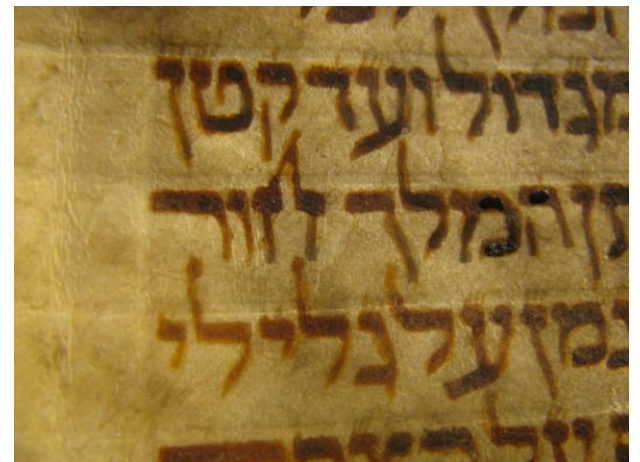 מגדול ועד קטן
תן המלך חור
גמן על גלילי